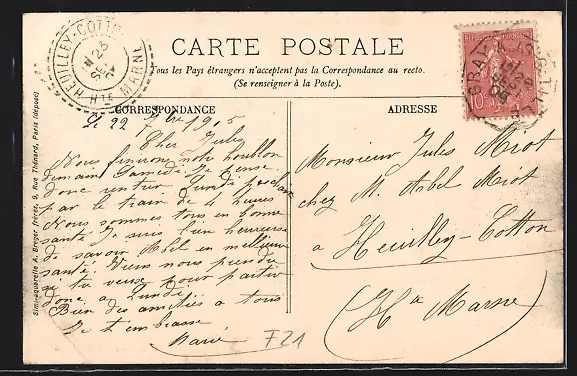 CARTE POSTALE
Tous les Pays étrangers n'acceptent pas la Correspondance au recto.
(Se renseigner à la Poste).
CORRESPONDANCE
Le 22 7bre 1905
Cher Jules
Nous finirons notre houblon
demain Samedi. Je pense
donc rentrer Lundi prochain
par le train de 4 heures
Nous sommes tous en bonne
santé. Je suis bien heureuse
de savoir Abel en meilleure
santé. Viens nous prendre
si tu veux pour partir
donc à Lundi.
Bien des amitiés à tous
Je t'embrasse
Marie
F21
ADRESSE
Monsieur Jules Miot
chez M. Abel Miot
à Heuilley-Cotton
(Hte Marne)
HEUILLEY-COTTON
23
SEPT
HTE MARNE
REPUBLIQUE FRANÇAISE
10
GRAY
Simi-aquarelle A. Breger frères, 9, Rue Thénard, Paris (déposé)